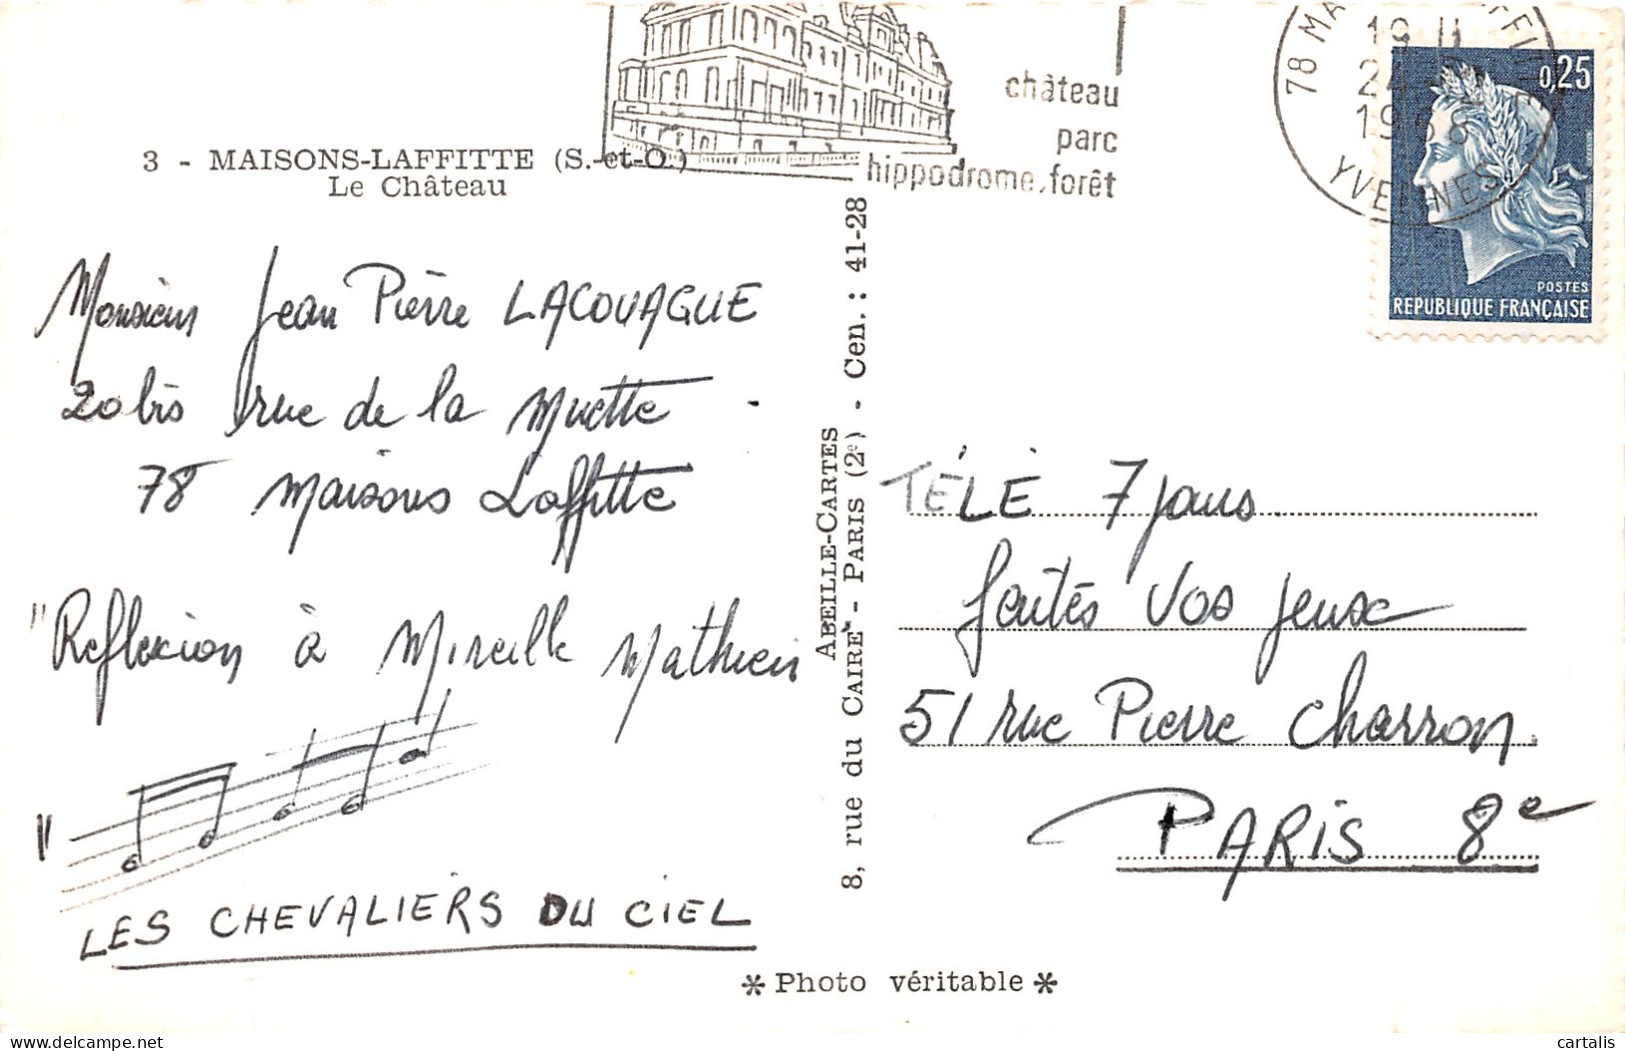 château
parc
hippodrome. forêt
78 MA
19 H
24
19 68
YVELINES
0,25
POSTES
REPUBLIQUE FRANÇAISE
3 - MAISONS-LAFFITTE (S.-et-O.)
Le Château
Monsieur Jean Pierre LACOUAGUE
20 bis rue de la Muette
78 Maisons Laffitte
"Reflexion à Mireille Mathieu
"
LES CHEVALIERS DU CIEL
ABEILLE-CARTES
8, rue du CAIRE - PARIS (2e) - Cen. : 41-28
TÉLÉ 7 jours.
faites vos jeux
51 rue Pierre Charron.
PARIS 8e
* Photo véritable *
cartalis
delcampe.net